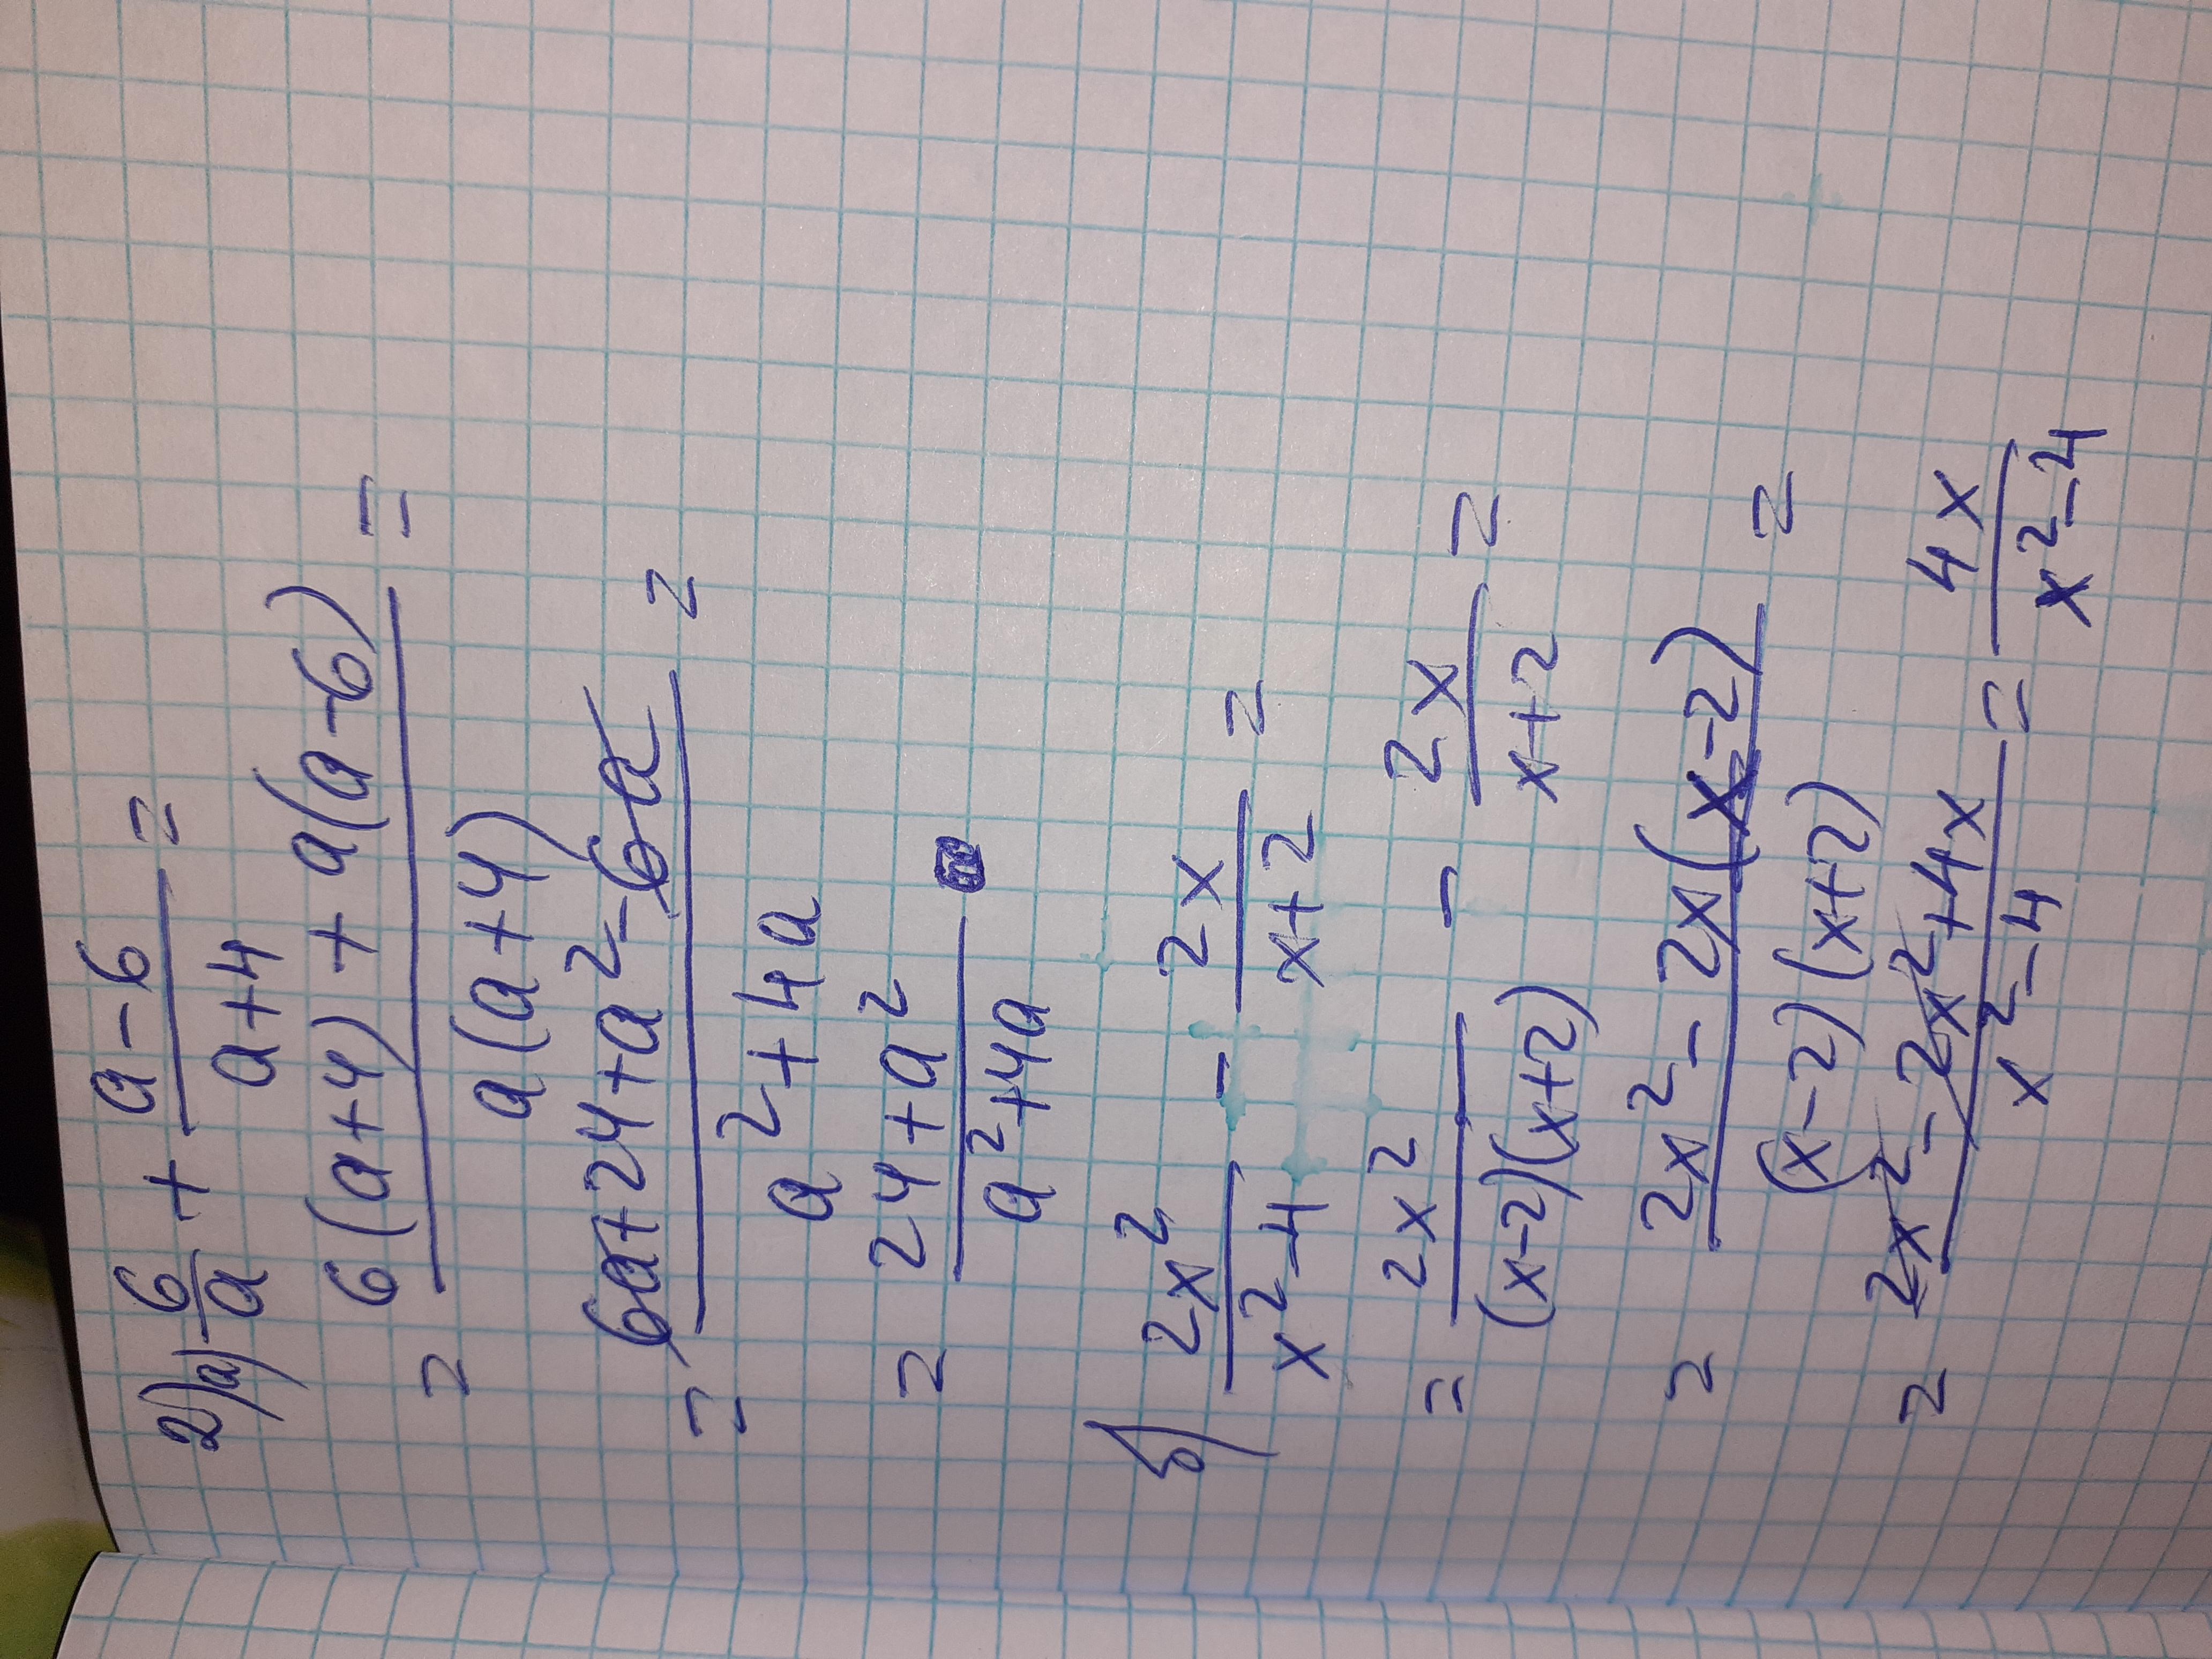 2) а) 6/a + a-6/a+4 =
= 6(a+4) + a(a-6) / a(a+4) =
= 6a+24+a²-6a / a²+4a =
= 24+a² / a²+4a
б) 2x²/x²-4 - 2x/x+2 =
= 2x²/(x-2)(x+2) - 2x/x+2 =
= 2x²-2x(x-2) / (x-2)(x+2) =
= 2x²-2x²+4x / x²-4 = 4x / x²-4